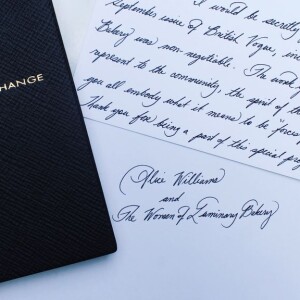 CHANGE
it would be secretly
September issue of British Vogue,
Bakery was non-negotiable. The work
represent to the community, the spirit of
you all embody what it means to be "forces
Thank you for being a part of this special
(Alice Williams
and
The Women of Luminary Bakery)